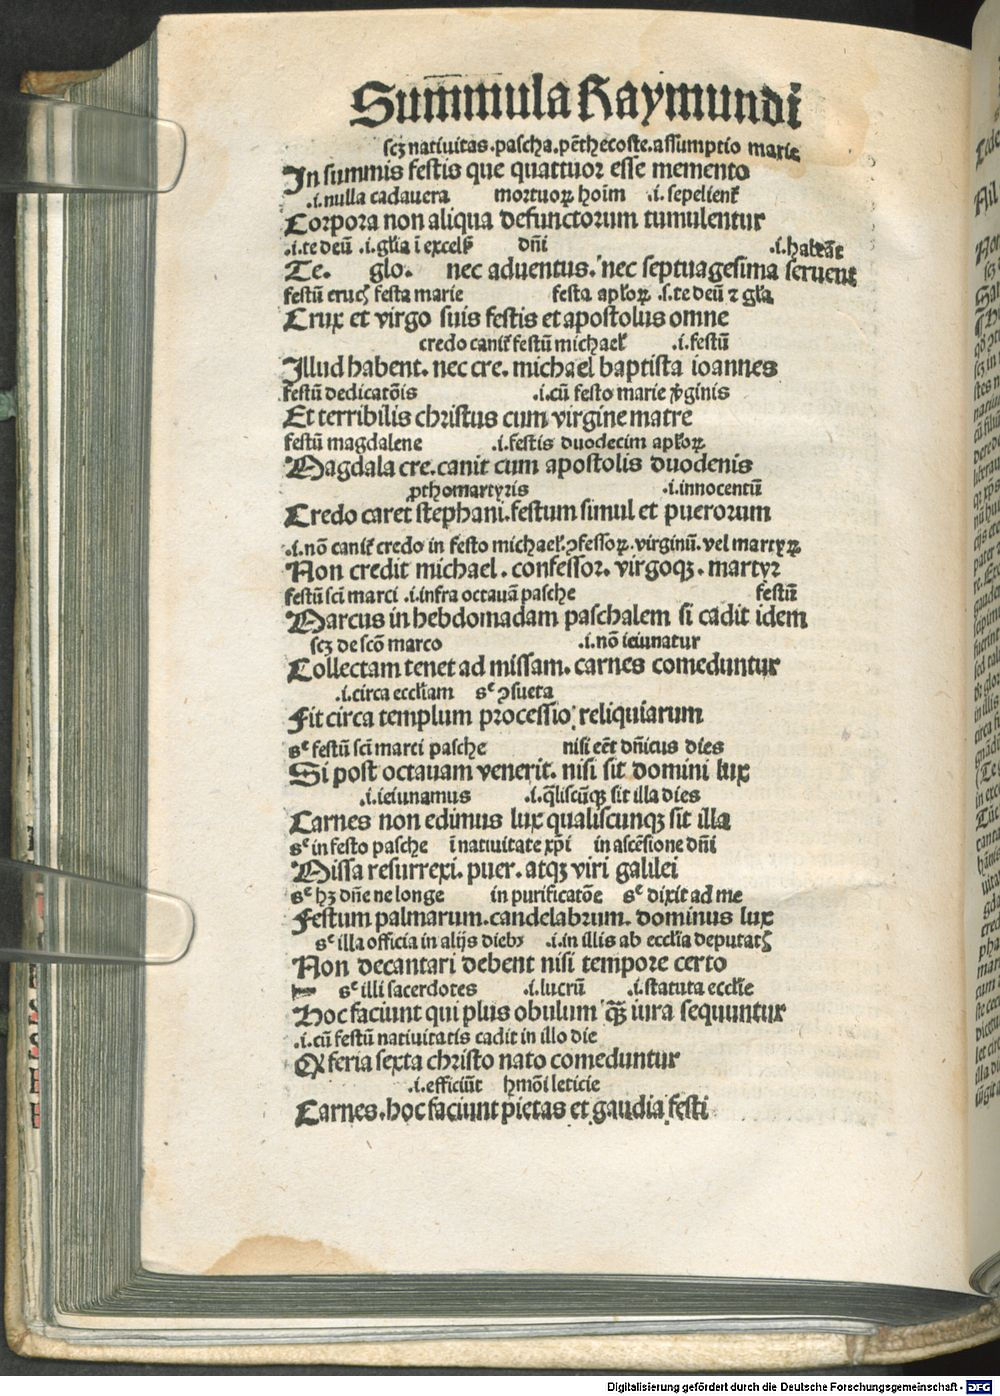 Sum̄mula Raymundi
scꝫ natiuitas.pascha.pēthecoste.assumptio marie
In summis festis que quattuor esse memento
.i.nulla cadauera mortuoꝝ hoīm .i.sepelient̉
Corpora non aliqua defunctorum tumulentur
.i.te deū .i.gl̓ia ī excels̉ dn̄i .i.habeāt
Te. glo. nec aduentus. nec septuagesima seruent
festū cruc̉ festa marie festa apl̓oꝝ .s.te deū ⁊ gl̓a
Crux et virgo suis festis et apostolus omne
credo canit̉ festū michael̓ .i.festū
Illud habent. nec cre. michael baptista ioannes
festū dedicatōis .i.cū festo marie v̓ginis
Et terribilis christus cum virgine matre
festū magdalene .i.festis duodecim apl̓oꝝ
Magdala cre.canit cum apostolis duodenis
ꝓthomartyris .i.innocentū
Credo caret stephani.festum simul et puerorum
.i.nō canit̉ credo in festo michael̓.ꝯfessoꝝ.virginū.vel martyꝝ
Non credit michael. confessor. virgoqꝫ. martyr
festū sct̄i marci .i.infra octauā pasche festū
Marcus in hebdomadam paschalem si cadit idem
scꝫ de sct̄o marco .i.nō ieiunatur
Collectam tenet ad missam. carnes comeduntur
.i.circa eccl̓iam sᶜ ꝯsueta
Fit circa templum processio reliquiarum
sᶜ festū sct̄i marci pasche nisi eēt dn̄icus dies
Si post octauam venerit. nisi sit domini lux
.i.ieiunamus .i.q̄liscūqꝫ sit illa dies
Carnes non edimus lux qualiscunqꝫ sit illa
sᶜ in festo pasche ī natiuitate xp̄i in ascēsione dn̄i
Missa resurrexi. puer. atqꝫ viri galilei
sᶜ hꝫ dn̄e ne longe in purificatōe sᶜ dixit ad me
Festum palmarum.candelabrum. dominus lux
sᶜ illa officia in alijs diebꝫ .i.in illis ab eccl̓ia deputat̉
Non decantari debent nisi tempore certo
sᶜ illi sacerdotes .i.lucrū .i.statuta eccl̓ie
Hoc faciunt qui plus obulum qꝫ̄ iura sequuntur
.i.cū festū natiuitatis cadit in illo die
Qn̄ feria sexta christo nato comeduntur
.i.efficiūt hmōi leticie
Carnes.hoc faciunt pietas et gaudia festi
Digitalisierung gefördert durch die Deutsche Forschungsgemeinschaft - DFG